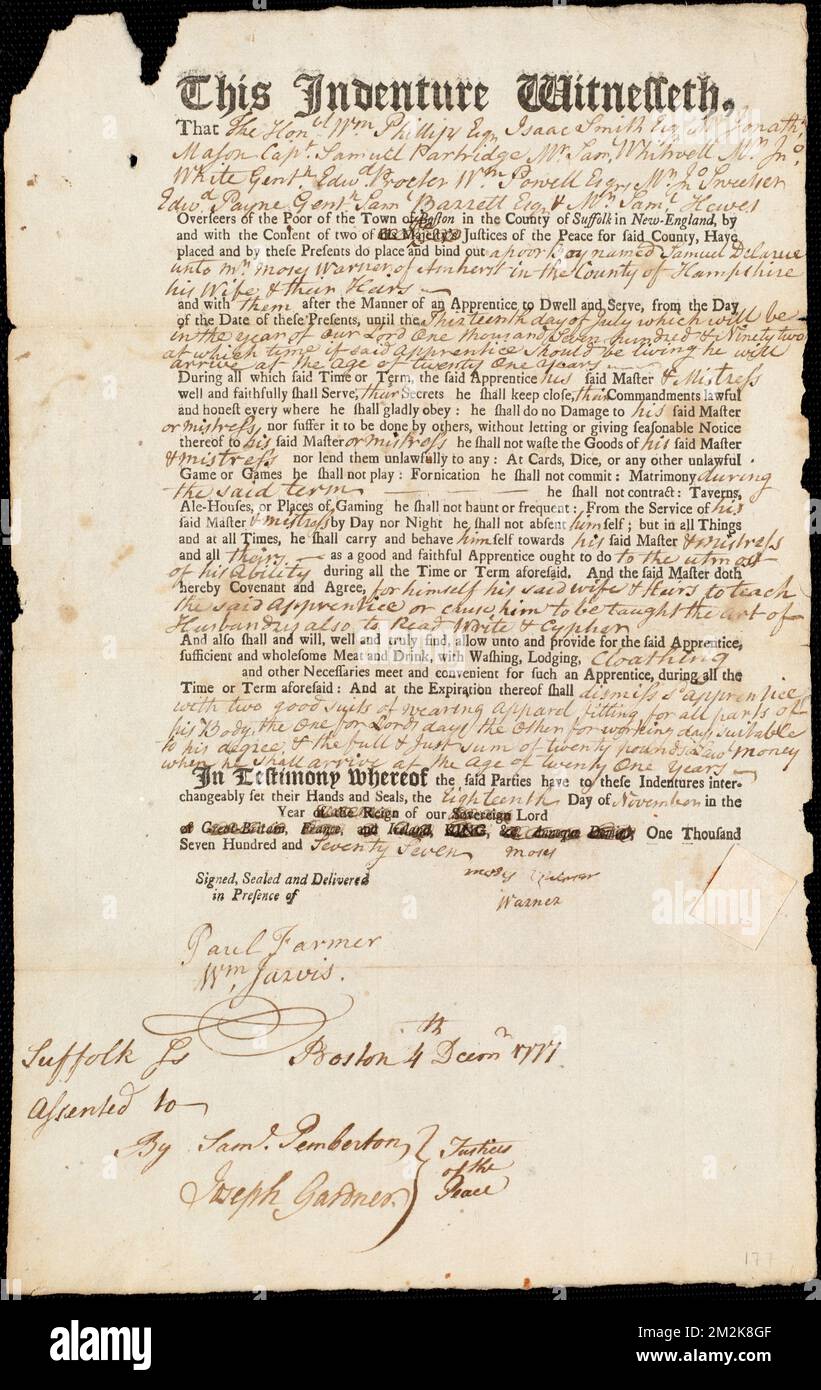 This Indenture Witnesseth,
That The Honl Wm Phillips Esqr, Isaac Smith Esqr Mr Jonathn
Mason Capt. Samuel Partridge Mr. Saml Whitwell Mr. Jno.
White Gentn Edwd Procter Wm Powell Esqr, Mr Jno Sweetser
Edwd Payne Gentn Saml Barrett Esqr & Mr Saml Hewes
Overseers of the Poor of the Town of Boston in the County of Suffolk in New-England, by
and with the Consent of two of the Majesty's Justices of the Peace for said County, Have
placed and by these Presents do place and bind out a poor Boy named Samuel Delarue
unto Mr. Moses Warner of Amherst in the County of Hampshire
his Wife & their Heirs
and with them after the Manner of an Apprentice to Dwell and Serve, from the Day
of the Date of these Presents, until the Thirteenth day of July which will be
in the year of our Lord One thousand Seven hundred & Ninety two
at which time if said Apprentice should be living he will
arrive at the age of twenty One Years
During all which said Time or Term, the said Apprentice his said Master & Mistress
well and faithfully shall Serve, their Secrets he shall keep close, their Commandments lawful
and honest every where he shall gladly obey: he shall do no Damage to his said Master
or mistress, nor suffer it to be done by others, without letting or giving seasonable Notice
thereof to his said Master or mistress he shall not waste the Goods of his said Master
& mistress nor lend them unlawfully to any: At Cards, Dice, or any other unlawful
Game or Games he shall not play: Fornication he shall not commit: Matrimony during
the said term he shall not contract: Taverns,
Ale-Houses, or Places of Gaming he shall not haunt or frequent: From the Service of his
said Master & mistress by Day nor Night he shall not absent himself; but in all Things
and at all Times, he shall carry and behave himself towards his said Master & mistress
and all theirs as a good and faithful Apprentice ought to do to the utmost
of his Ability during all the Time or Term aforesaid. And the said Master doth
hereby Covenant and Agree, for himself his said wife & Heirs to teach
the said Apprentice or cause him to be taught the art of
Husbandry also to Read Write & Cypher
And also shall and will, well and truly find, allow unto and provide for the said Apprentice,
sufficient and wholesome Meat and Drink, with Washing, Lodging, Cloathing
and other Necessaries meet and convenient for such an Apprentice, during all the
Time or Term aforesaid: And at the Expiration thereof shall dismiss sd Apprentice
with two good suits of wearing Apparel fitting for all parts of
his Body, the One for Lords days the Other for working days suitable
to his degree, & the full & Just sum of twenty pounds Law Money
when he shall arrive at the Age of twenty One Years
In Testimony whereof the said Parties have to these Indentures inter-
changeably set their Hands and Seals, the Eighteenth Day of November in the
Year of the Reign of our Sovereign Lord
of Great-Britain, France, and Ireland, KING, One Thousand
Seven Hundred and Seventy Seven moses
Signed, Sealed and Delivered
in Presence of
Warner
Paul Farmer
Wm. Jarvis.
Suffolk Ss Boston 4th Decmr 1777
Assented to
By Saml. Pemberton
Joseph Gardner
Justices
of the
Peace
177
alamy
Image ID: 2M2K8GF
www.alamy.com